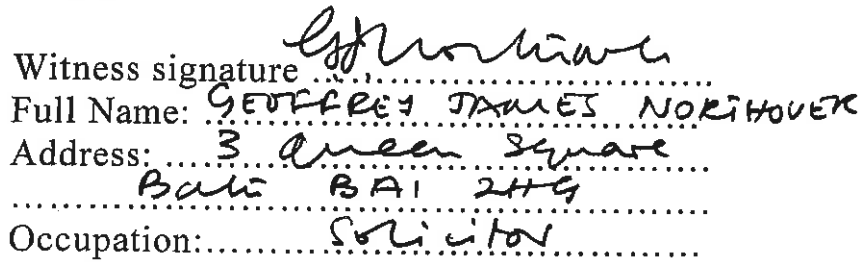 Witness signature GJNorthover
Full Name: GEOFFREY JAMES NORTHOVER
Address: 3 Queen Square
Bath BA1 2HG
Occupation: Solicitor